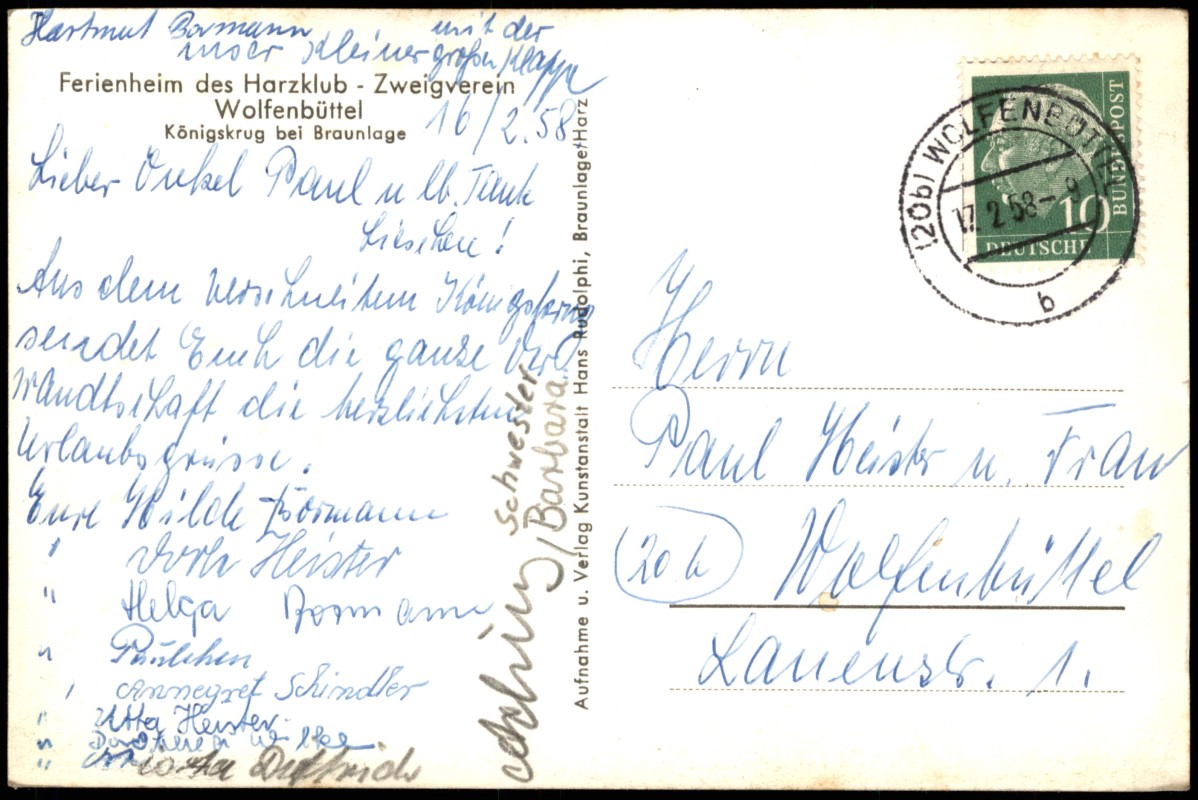 Hartmut Bormann mit der
unser kleiner großen Klappe
Ferienheim des Harzklub - Zweigverein
Wolfenbüttel
Königskrug bei Braunlage
16/2.58
Lieber Onkel Paul u lb. Tante
Lieschen!
Aus dem verschneiten
sendet Euch die ganze Ver
wandtschaft die herzlichsten
Urlaubsgrüsse.
Eure Hilde Bormann
" Dorle Heister
" Helga Bormann
" Paulchen
" Annegret Schindler
" Utta Heister
"
" Dettrich
Schwester
Barbara
Aufnahme u. Verlag Kunstanstalt Hans Rudolphi, Braunlage/Harz
DEUTSCHE
BUNDESPOST
10
(20b) WOLFENBÜTTEL
17.2.58-9
b
Herrn
Paul Heister u. Frau
(20b) Wolfenbüttel
Lauenstr. 1.